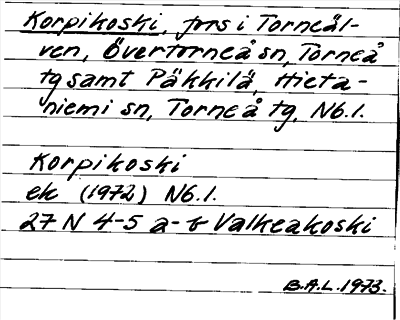 Korpikoski, fors i Torneäl-
ven, Övertorneå sn, Torneå
tg samt Päkkilä, Hieta-
niemi sn, Torneå tg, Nb.l.
Korpikoski
ek (1972) Nb.l.
27 N 4-5 a-b Valkeakoski
B.A.L. 1973.